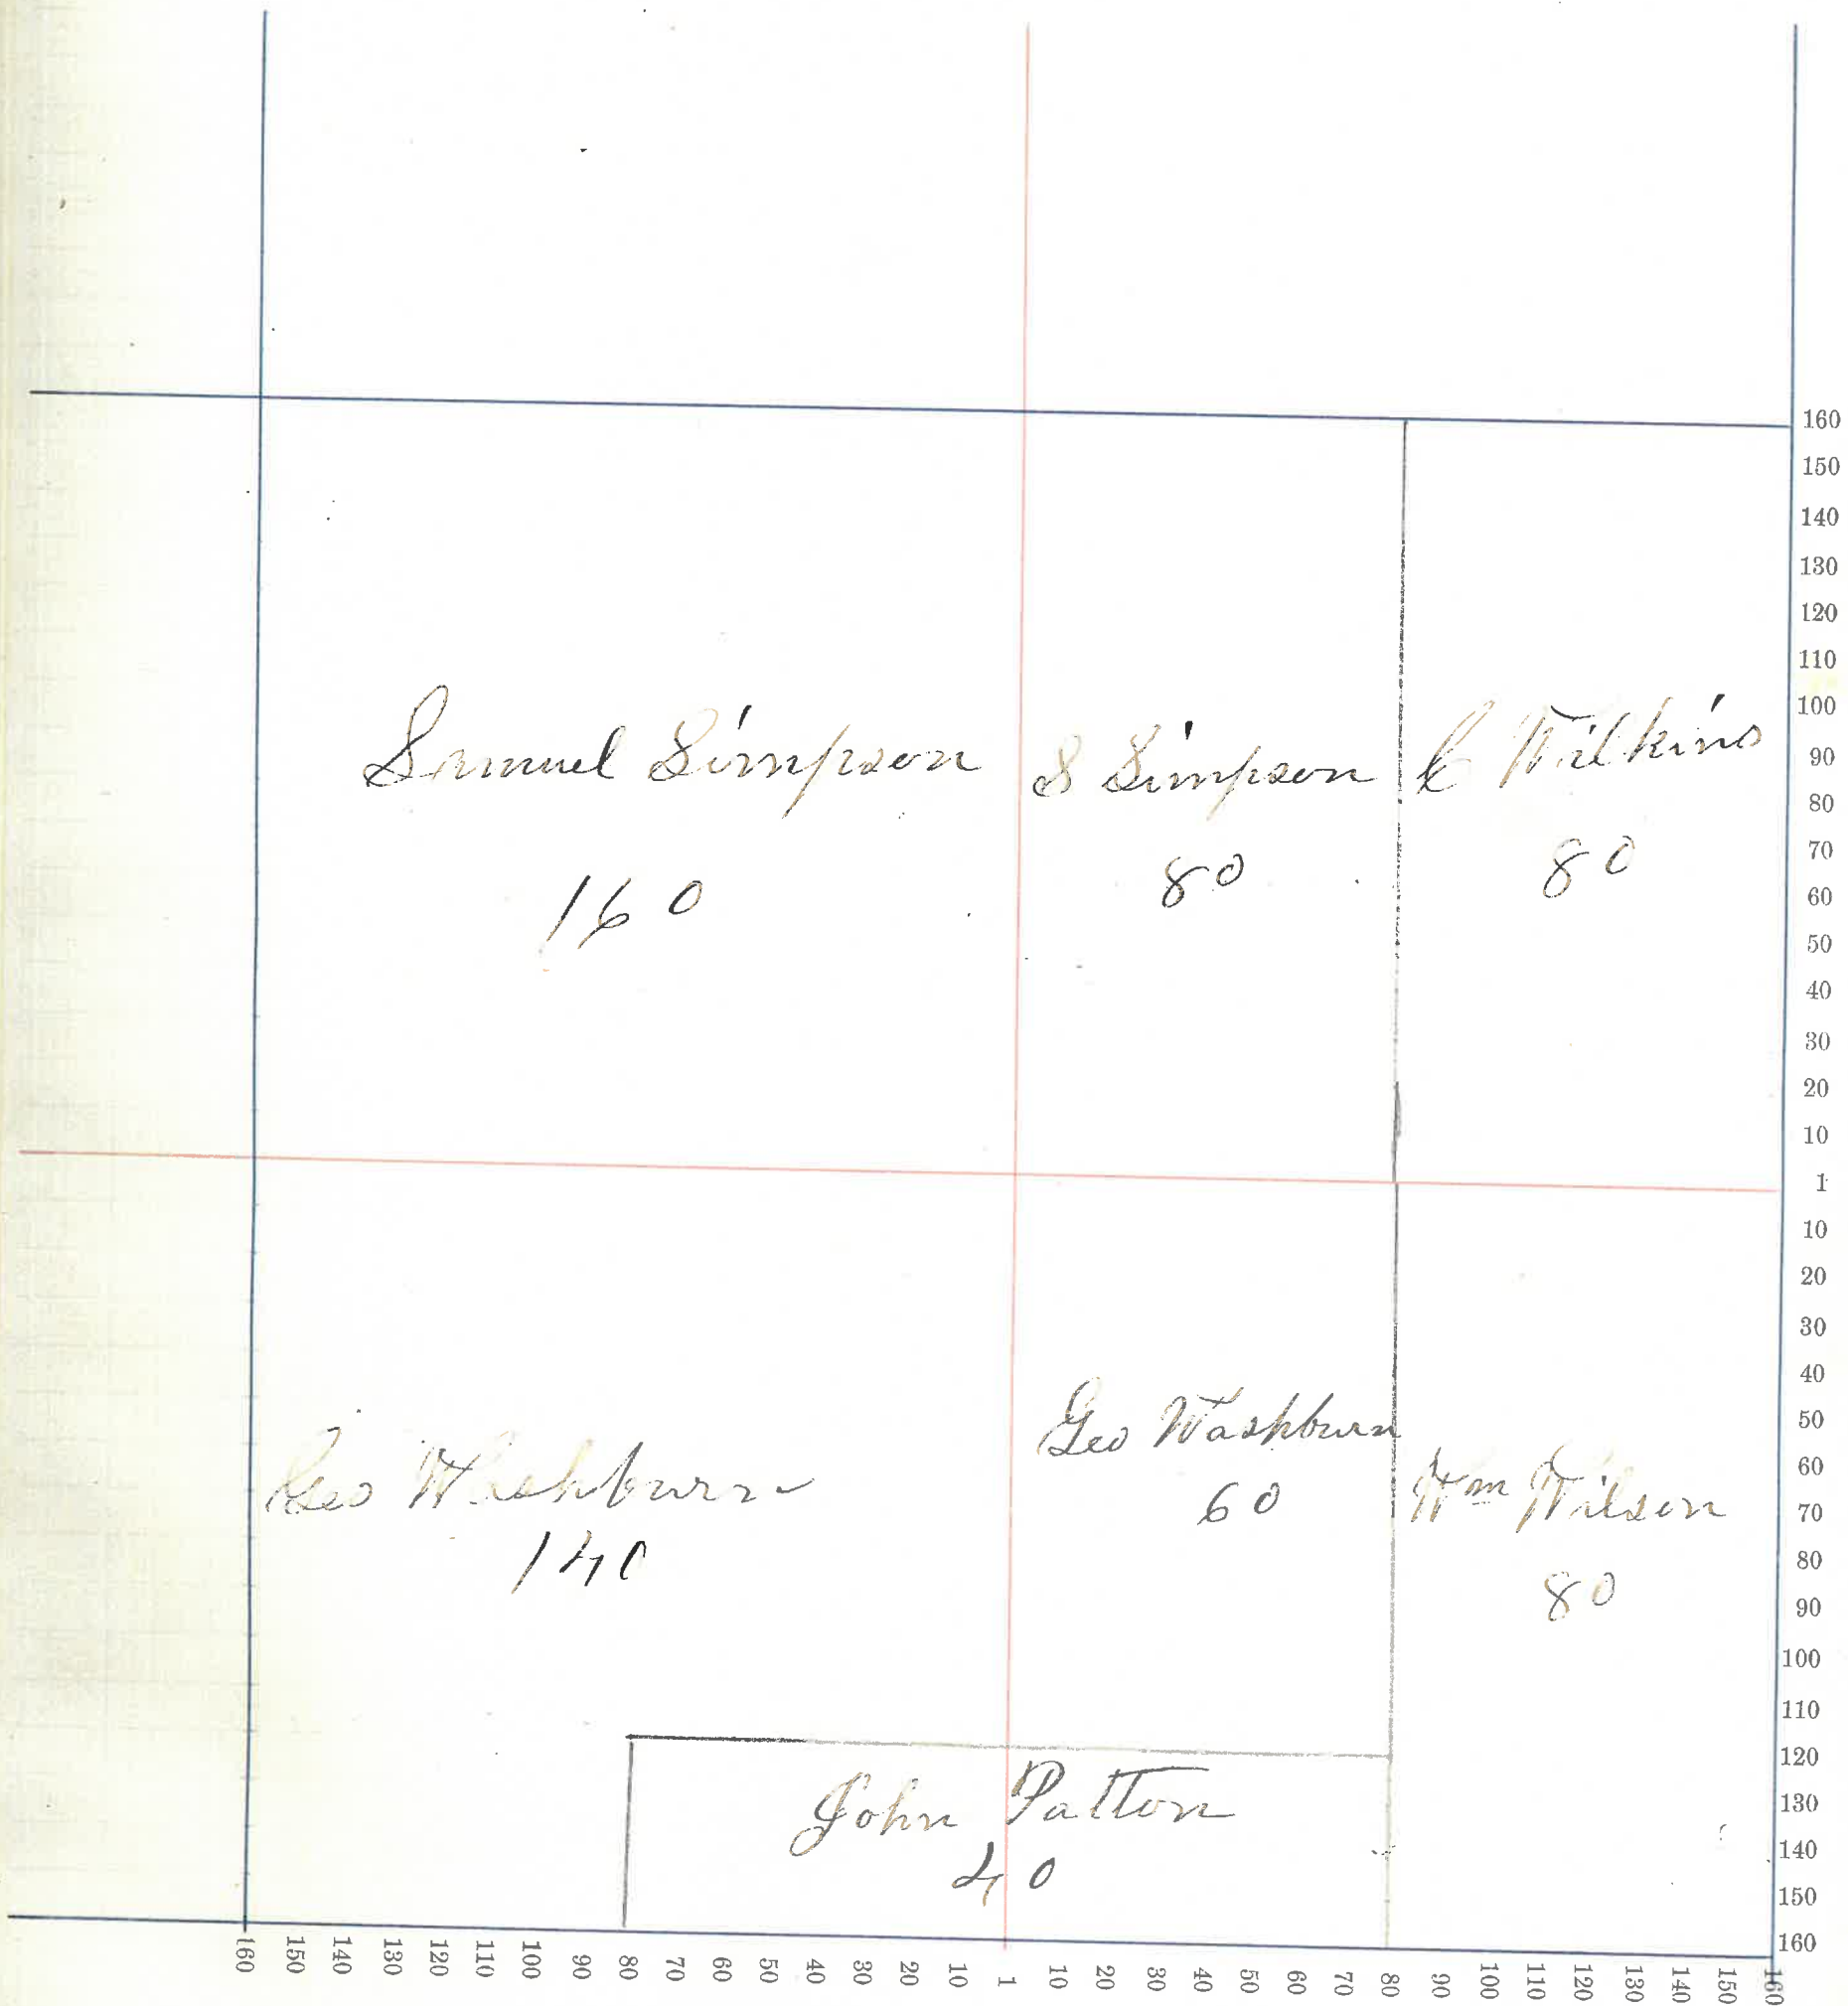 Samuel Simpson
160
S Simpson
80
C Wilkins
80
Geo Washburn
140
Geo Washburn
60
Wm Wilson
80
John Patton
40
160
150
140
130
120
110
100
90
80
70
60
50
40
30
20
10
1
10
20
30
40
50
60
70
80
90
100
110
120
130
140
150
160
160 150 140 130 120 110 100 90 80 70 60 50 40 30 20 10 1 10 20 30 40 50 60 70 80 90 100 110 120 130 140 150 160